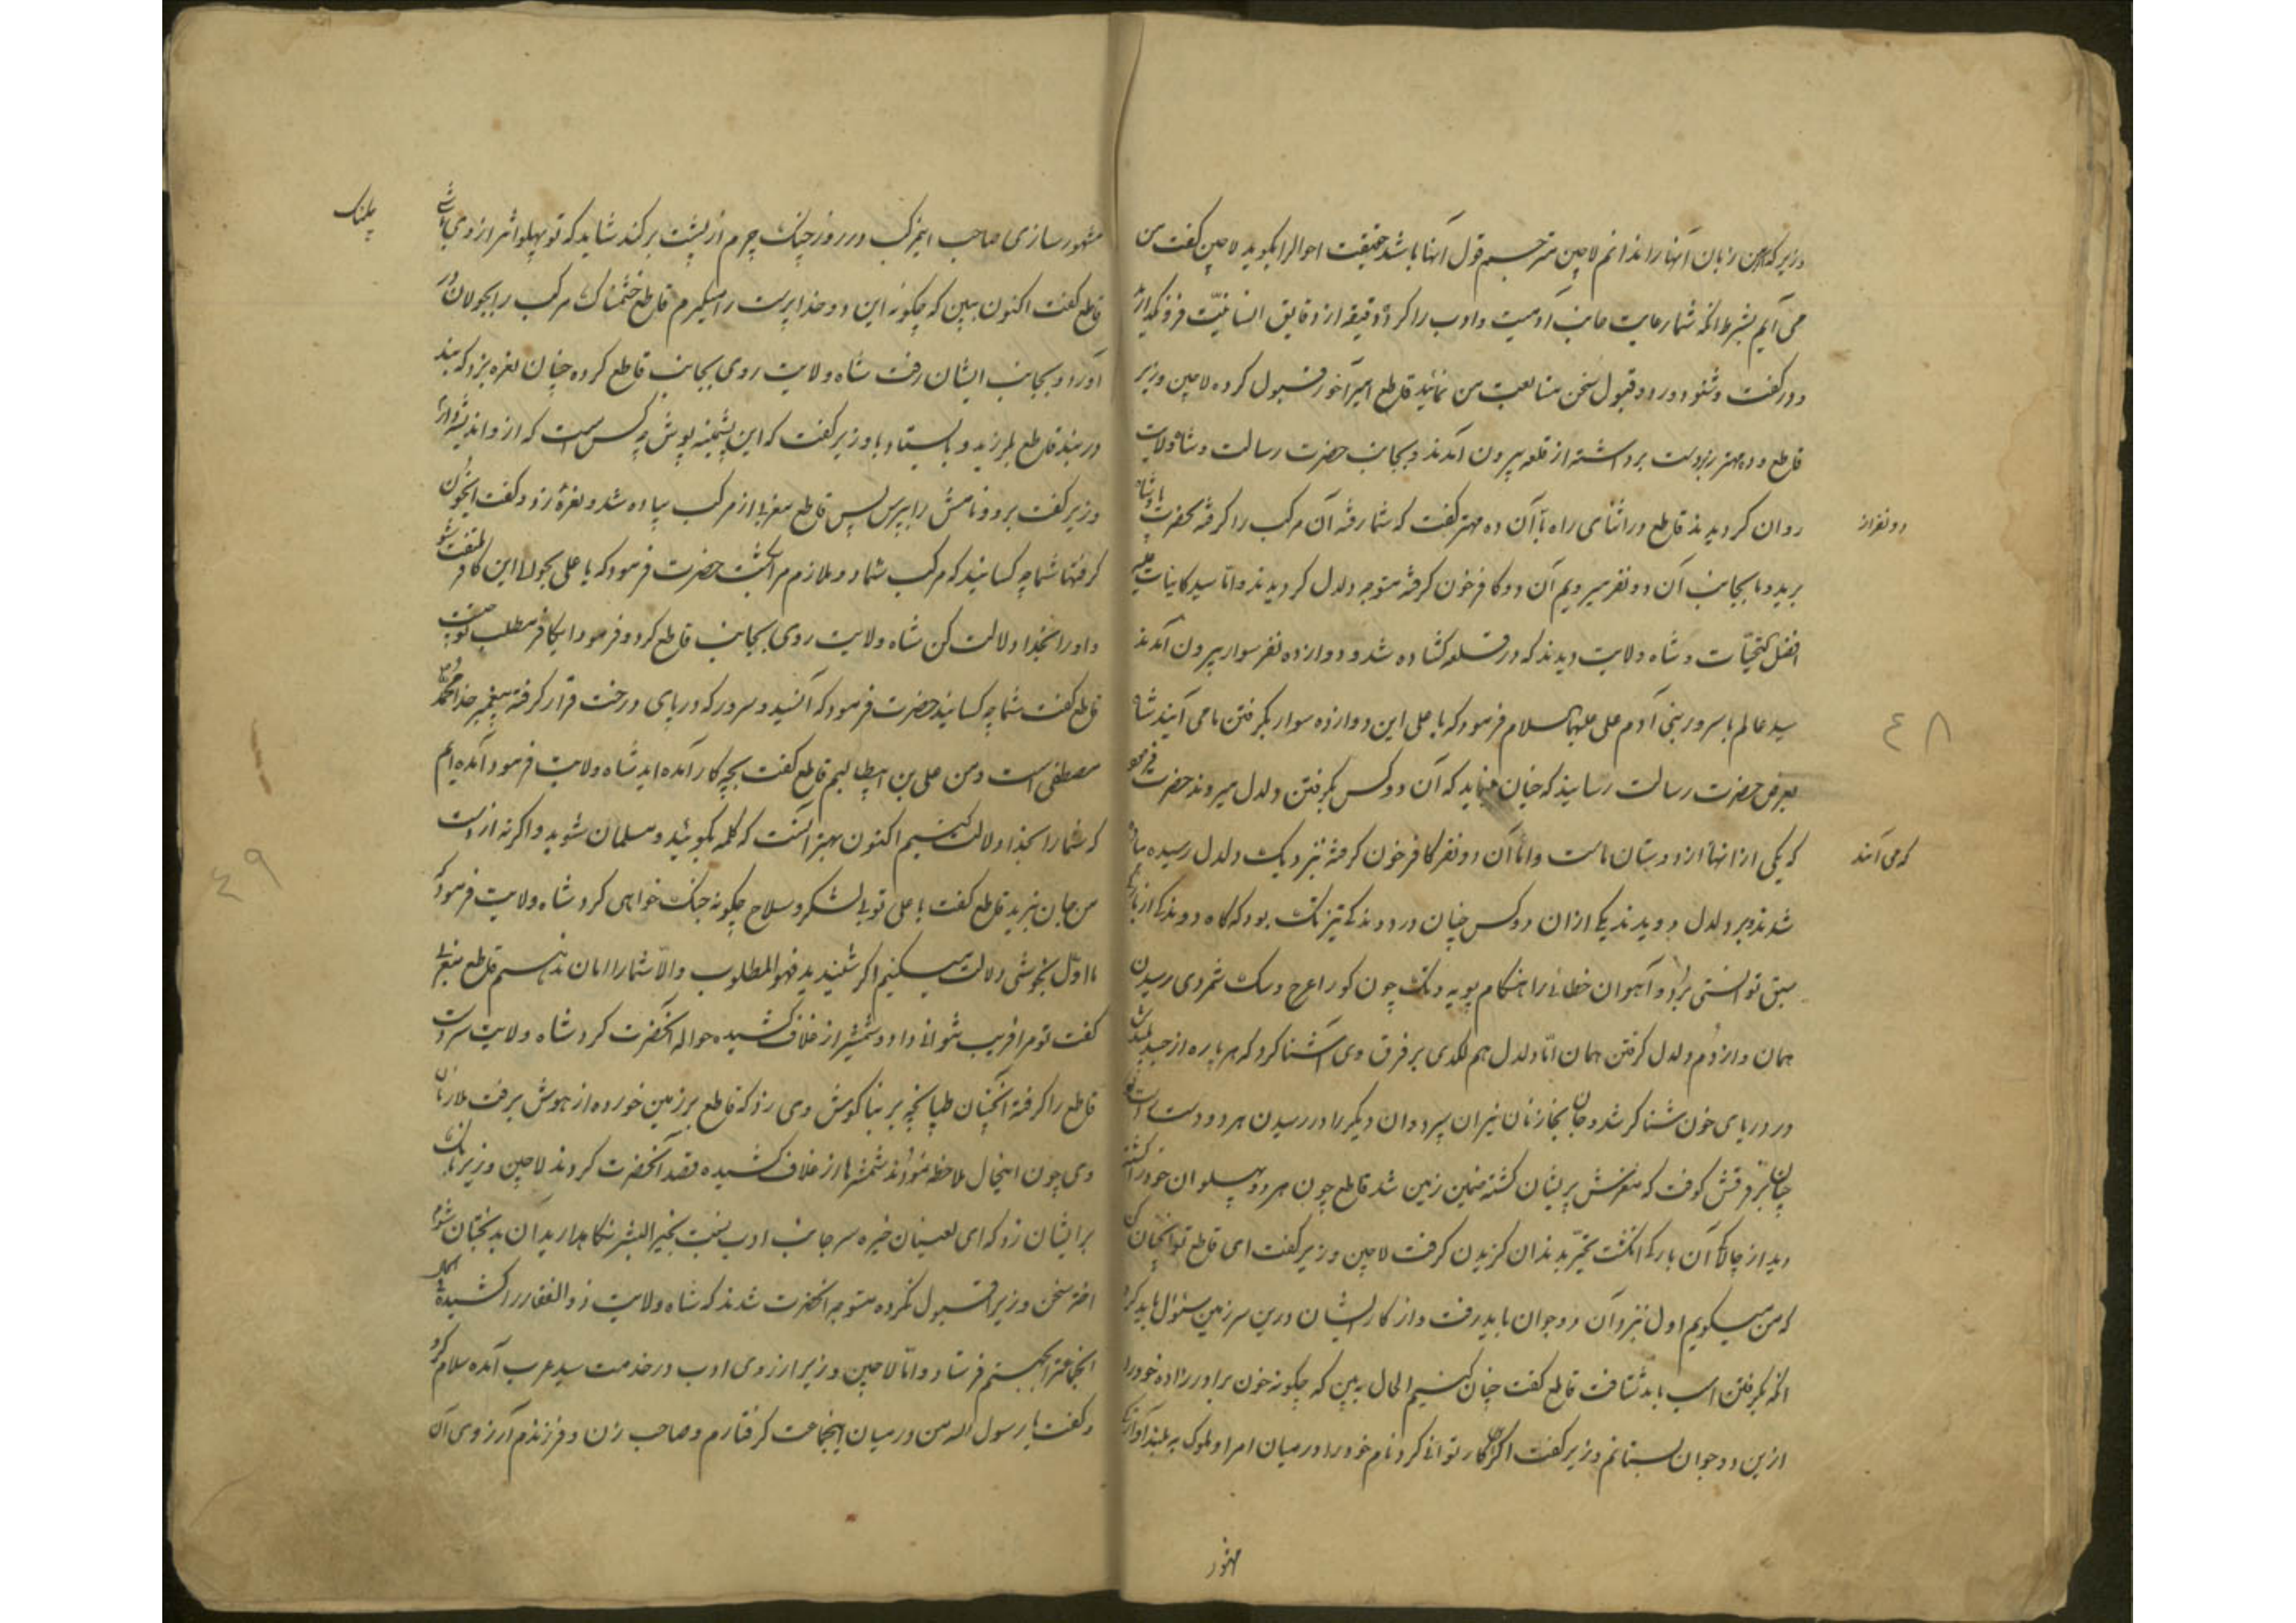 وزیر که من زبان آنها را ندانم لاچین مترجم قول آنها باشد حقیقت احوال را بگوید لاچین گفت من
می آیم بشرط آنکه شما رعایت جانب آدمیت و ادب را کرده دقیقه از دقایق انسانیّت فرو نگذارید
و در گفت و شنود و رد و قبول سخن متابعت من نمائید قاطع امیرآخور قبول کرده لاچین وزیر
قاطع و ده مهتر زبردست برداشته از قلعه بیرون آمدند و بجانب حضرت رسالت و شاه ولایت
روان کردیدند قاطع در اثنای راه با آن ده مهتر گفت که شما رفته آن مرکب را گرفته بحضرت پادشاه
دو نفر از
برید و ما بجانب آن دو نفر میرویم آن دو کافر خون گرفته متوجه دلدل کردیدند و امّا سید کاینات علیه
افضل التحیّات و شاه ولایت دیدند که در قلعه کشاده شد و دوازده نفر سوار بیرون آمدند
سید عالم با سرور بنی آدم علی علیهما السلام فرمود که یا علی این دوازده سوار بگرفتن ما می آیند شاه
٤٨
بعرض حضرت رسالت رسانید که چنان مینماید که آن دو کس بگرفتن دلدل میروند حضرت فرمود
که یکی از انها از دوستان ماست و امّا آن دو نفر کافر خون گرفته نزدیک دلدل رسیده پیاده
که می آیند
شدند و بر دلدل دویدند یکی از ان دو کس چنان در دوندگی تیزتک بود که گاه دوندگی از باد
سبق توانستی برُد و آهوان خطائی را هنگام پویه و تک چون کور اعرج و سک شمردی رسیدن
همان و از دُم دلدل گرفتن همان امّا دلدل هم لگدی بر فرق وی آشنا کرد که هر پاره از جسد پلیدش
در دریای خون شنا کر شد و جان بخازنان نیران سپرد و ان دیگر را در رسیدن هر دو دست راست
چنان بر فرقش کوفت که مغزش پریشان کشته عجین زمین شد قاطع چون هر دو پهلوان خود را کشته
دید از چالاکی آن بارگی انگشت تحیّر بدندان گزیدن گرفت لاچین وزیر گفت ای قاطع تو انچنان کن
که من میگویم اول نزد آن دو جوان باید رفت و از کار ایشان درین سرزمین سئوال باید کرد
آنگه بگرفتن اسب باید شتافت قاطع گفت چنان کنیم الحال به بین که چگونه خون برادرزاده خود را
ازین دو جوان بستانم وزیر گفت اگر این کار توانی کرد نام خود را در میان امرا و ملوک به بلندآوازگی
مشهور
مشهور سازی صاحب اینمرکب در روز جنگ چرم از پشت پلنک برکند شاید که تو پهلواتر از وی باشی
پلنک
قاطع گفت اکنون ببین که چگونه این دو خداپرست را میگیرم قاطع خشمناک مرکب را بجولان در
آورد و بجانب ایشان رفت شاه ولایت روی بجانب قاطع کرده چنان نعره بزد که بند
در بند قاطع بلرزید و بایستاد با وزیر گفت که این پشمینه پوش چه کس است که از و اندیشه دارم
وزیر گفت برو و نامش را بپرس پس قاطع مغربی از مرکب پیاده شد و نعرهٔ زد و گفت ایخون
گرفتها شما چه کسانید که مرکب شما دو ملازم مرا کشت حضرت فرمود که یا علی بجواب این کافر ملتفت شو
و او را بخدا دلالت کن شاه ولایت روی بجانب قاطع کرد و فرمود ایکافر مطلب تو چیست
قاطع گفت شما چه کسانید حضرت فرمود که آن سید و سرور که در پای درخت قرار گرفته پیغمبر خدا محمد
مصطفی است و من علی بن ابیطالبم قاطع گفت بچه کار آمده اید شاه ولایت فرمود آمده ایم
که شما را بخدا دلالت کنیم اکنون بهتر آنست که کلمه بگوئید و مسلمان شوید و اگر نه از دست
٤٩
من جان نبرید قاطع گفت یا علی تو بی لشکر و سلاح چگونه جنگ خواهی کرد شاه ولایت فرمود که
ما اوّل بخوشی دلالت میکنیم اگر شنیدید فهو المطلوب والّا شما را امان ندهیم قاطع مغربی
گفت تو مرا فریب نتوانی داد و شمشیر از غلاف کشیده حواله انحضرت کرد شاه ولایت سر دست
قاطع را گرفته آنچنان طپانچه بر بناگوش وی زد که قاطع بر زمین خورده از هوش برفت ملازمان
وی چون اینحال ملاحظه نمودند شمشیرها از غلاف کشیده قصد آنحضرت کردند لاچین وزیر بانک
بر ایشان زد که ای لعینان خیره سر جانب ادب نسبت بخیر البشر نگاهدارید آن بدبختان شوم
اختر سخن وزیر قبول نکرده متوجه انحضرت شدند که شاه ولایت ذو الفقار را کشیده فی الحال
انجماعترا بجهنم فرستاد و امّا لاچین وزیر از روی ادب در خدمت سید عرب آمده سلام کرد
و گفت یا رسول الله من در میان اینجماعت گرفتارم و صاحب زن و فرزندم آرزوی آن